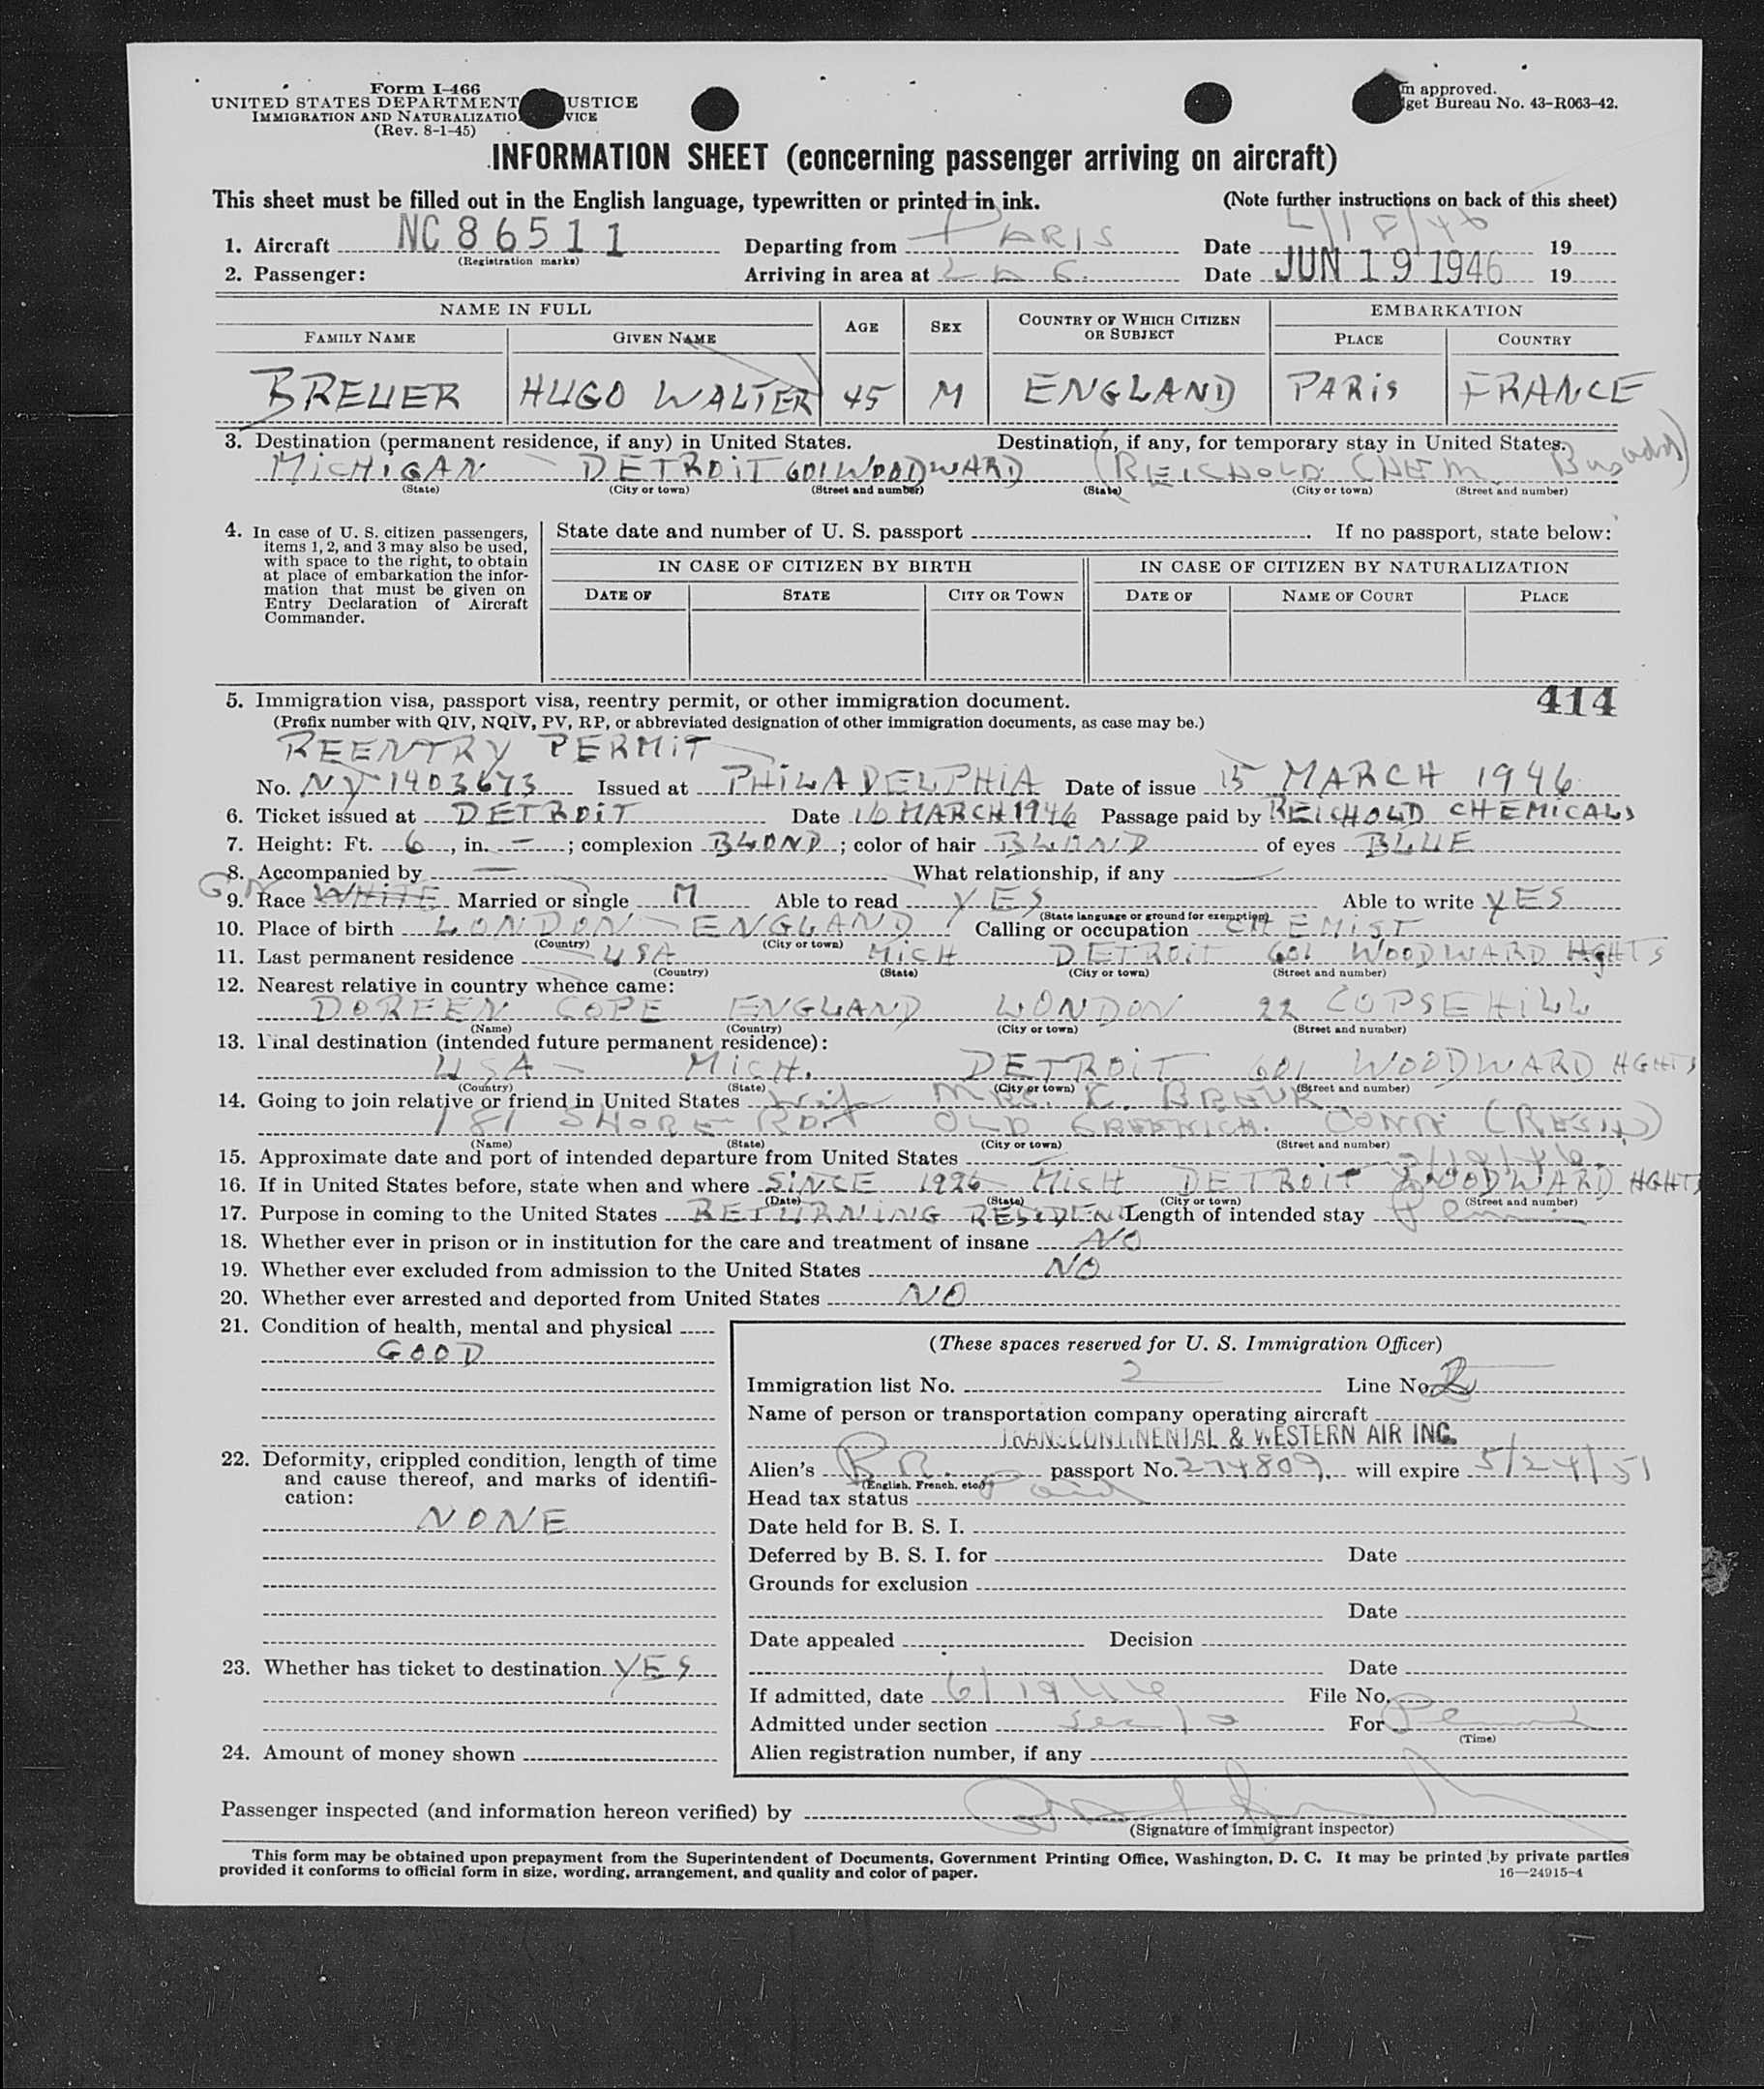 Form I-466
UNITED STATES DEPARTMENT USTICE
IMMIGRATION AND NATURALIZATIO VICE
(Rev. 8-1-45)
m approved.
get Bureau No. 43-R063-42.
INFORMATION SHEET (concerning passenger arriving on aircraft)
This sheet must be filled out in the English language, typewritten or printed in ink. (Note further instructions on back of this sheet)
1. Aircraft NC 86511 Departing from PARIS Date 6/18/46 19
(Registration marks)
2. Passenger: Arriving in area at L A G. Date JUN 19 1946 19
NAME IN FULL AGE SEX COUNTRY OF WHICH CITIZEN OR SUBJECT EMBARKATION
FAMILY NAME GIVEN NAME PLACE COUNTRY
BREUER HUGO WALTER 45 M ENGLAND PARIS FRANCE
3. Destination (permanent residence, if any) in United States. Destination, if any, for temporary stay in United States.
MICHIGAN - DETROIT 601 WOODWARD (REICHOLD CHEM. Bus addr)
(State) (City or town) (Street and number) (State) (City or town) (Street and number)
4. In case of U. S. citizen passengers, items 1, 2, and 3 may also be used, with space to the right, to obtain at place of embarkation the information that must be given on Entry Declaration of Aircraft Commander.
State date and number of U. S. passport . If no passport, state below:
IN CASE OF CITIZEN BY BIRTH IN CASE OF CITIZEN BY NATURALIZATION
DATE OF STATE CITY OR TOWN DATE OF NAME OF COURT PLACE
5. Immigration visa, passport visa, reentry permit, or other immigration document. 414
(Prefix number with QIV, NQIV, PV, RP, or abbreviated designation of other immigration documents, as case may be.)
REENTRY PERMIT
No. NY 1403673 Issued at PHILADELPHIA Date of issue 15 MARCH 1946
6. Ticket issued at DETROIT Date 16 MARCH 1946 Passage paid by REICHOLD CHEMICALS
7. Height: Ft. 6, in. - ; complexion BLOND ; color of hair BLOND of eyes BLUE
8. Accompanied by — What relationship, if any —
9. Race WHITE Married or single M Able to read YES Able to write YES
(State language or ground for exemption)
10. Place of birth LONDON - ENGLAND Calling or occupation CHEMIST
(Country) (City or town)
11. Last permanent residence USA MICH DETROIT 601 WOODWARD HGHTS
(Country) (State) (City or town) (Street and number)
12. Nearest relative in country whence came:
DOREEN COPE ENGLAND LONDON 22 COPSE HILL
(Name) (Country) (City or town) (Street and number)
13. Final destination (intended future permanent residence):
USA - MICH. DETROIT 601 WOODWARD HGHTS
(Country) (State) (City or town) (Street and number)
14. Going to join relative or friend in United States Wife MRS. K. BREUR
181 SHORE RD OLD GREENICH. CONN (RESID)
(Name) (State) (City or town) (Street and number)
15. Approximate date and port of intended departure from United States —
16. If in United States before, state when and where SINCE 1926 - MICH DETROIT WOODWARD HGHTS
(Date) (State) (City or town) (Street and number)
17. Purpose in coming to the United States RETURNING RESIDENT Length of intended stay Perm
18. Whether ever in prison or in institution for the care and treatment of insane NO
19. Whether ever excluded from admission to the United States NO
20. Whether ever arrested and deported from United States NO
21. Condition of health, mental and physical
GOOD
22. Deformity, crippled condition, length of time and cause thereof, and marks of identification:
NONE
23. Whether has ticket to destination YES
24. Amount of money shown
(These spaces reserved for U. S. Immigration Officer)
Immigration list No. 2 Line No. 2
Name of person or transportation company operating aircraft
TRANSCONTINENTAL & WESTERN AIR INC.
Alien's BR. passport No. 274809, will expire 5/24/51
(English, French, etc.)
Head tax status Paid
Date held for B. S. I.
Deferred by B. S. I. for Date
Grounds for exclusion
Date
Date appealed Decision
Date
If admitted, date 6/19/46 File No.
Admitted under section Sec 10 For Perm
(Time)
Alien registration number, if any
Passenger inspected (and information hereon verified) by
(Signature of immigrant inspector)
This form may be obtained upon prepayment from the Superintendent of Documents, Government Printing Office, Washington, D. C. It may be printed by private parties
provided it conforms to official form in size, wording, arrangement, and quality and color of paper. 16—24915-4